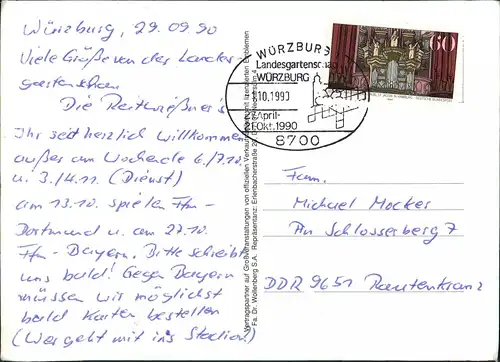 Würzburg, 29.09.90
Viele Grüße von der Landes-
gartenschau.
Die Reithmeßner's
Ihr seit herzlich willkommen
außer am Wochende 6./7.10.
u. 3./4.11. (Dienst)
am 13.10. spielen Ffm-
Dortmund u. am 27.10.
Ffm-Bayern. Bitte schreibt
uns bald! Gegen Bayern
müssen wir möglichst
bald Karten bestellen
(Wer geht mit ins Stadion)
Vertragspartner auf Großveranstaltungen von offiziellen Verkaufs mit lizensierten Emblemen
Fa. Dr. Wollenberg S.A. Repräsentanz: Erlenbacherstraße
WÜRZBURG
Landesgartenschau
WÜRZBURG
10.1990
April-
Okt.1990
8700
60
DEUTSCHE BUNDESPOST
Fam.
Michael Mocker
Am Schlosserberg 7
DDR 9651 Rautenkranz